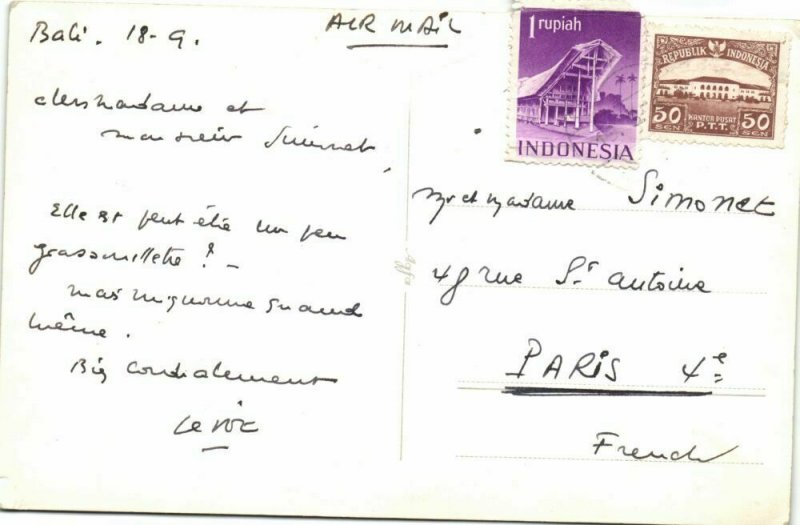 Bali. 18-9.
AIR MAIL
chers madame et
monsieur Simonet,
Elle est peut être un peu
grassouillette ? -
mais mignonne quand
même.
Bien cordialement
1 rupiah
INDONESIA
REPUBLIK INDONESIA
50 SEN
KANTOR PUSAT
P.T.T.
50 SEN
Agfa
Mr et Madame Simonet
48 rue St antoine
PARIS 4e
French